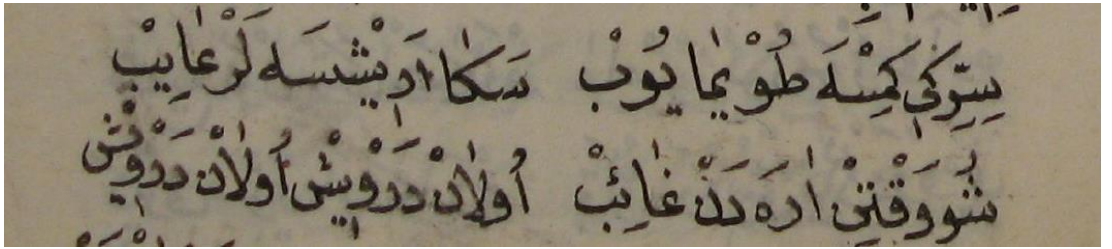 سِرّوكِي كِمْسَه طُوْيمَايُوبْ سَكَا اَدِيْشسَه لَرْ عَايِبْ
شُووَقْتِنْ اَرَه دَنْ غَائِبْ اُولاَنْ دَرْوِيشْ اُولاَنْ دَرْوِيشْ